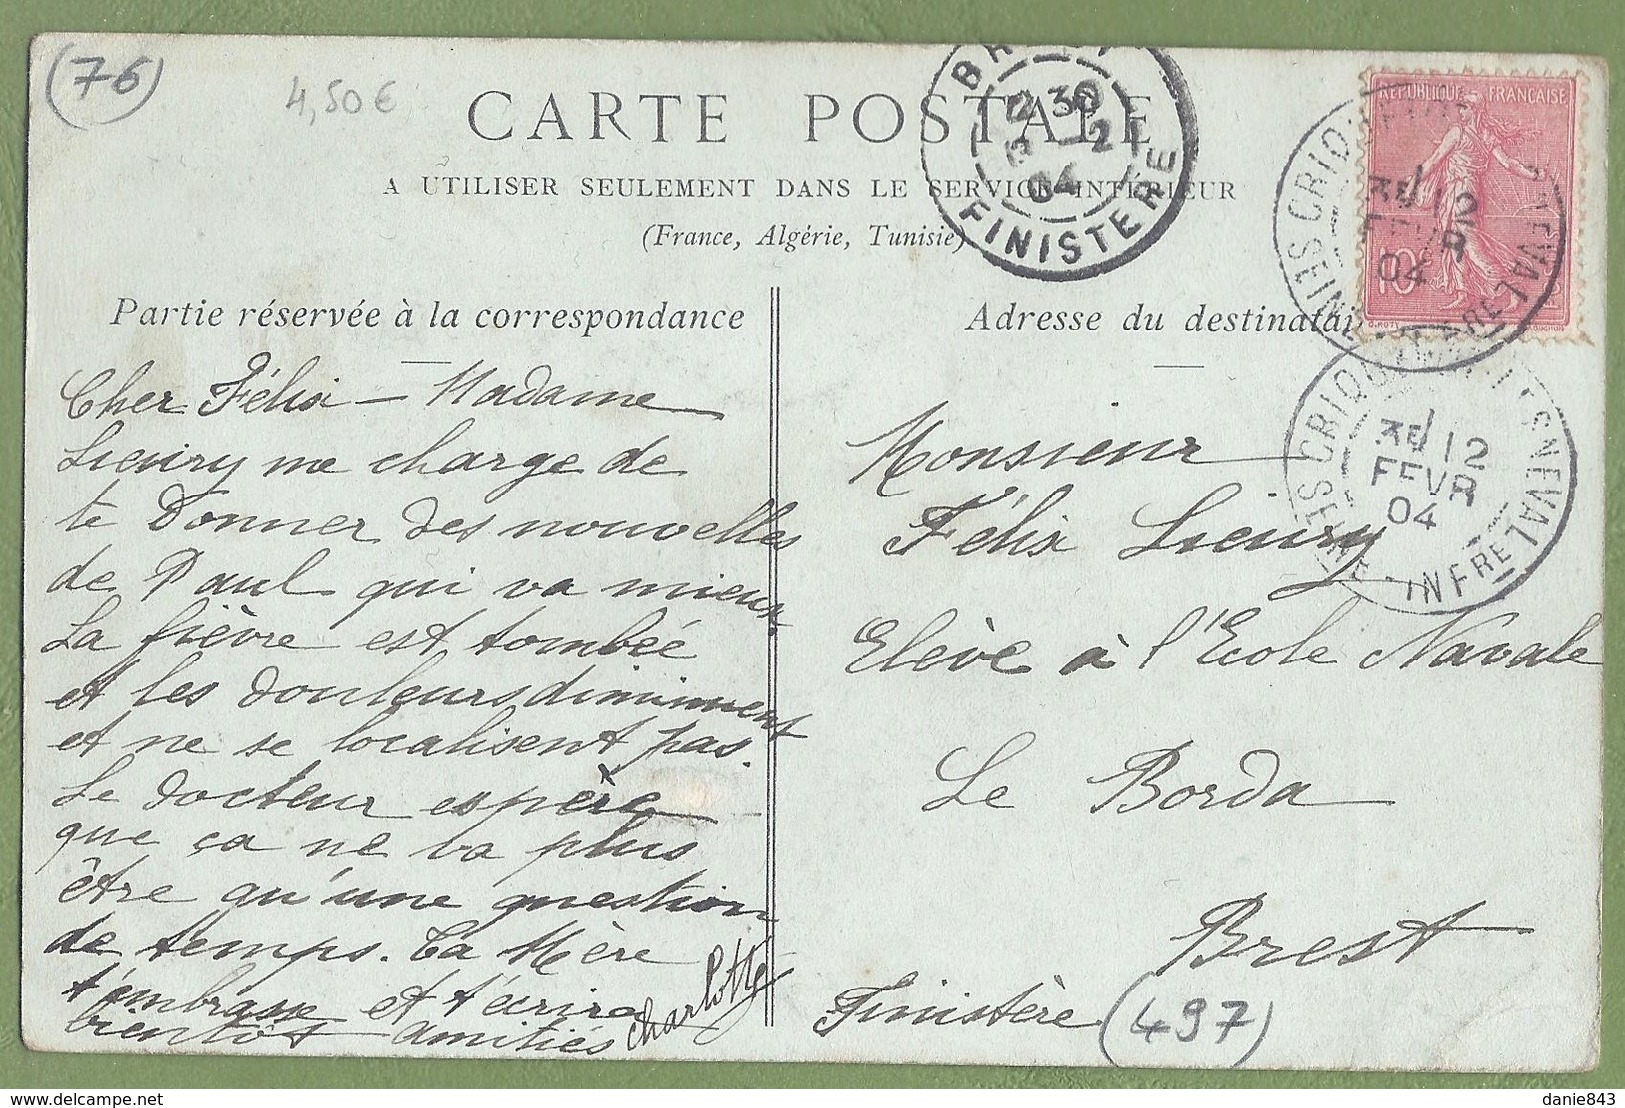 (76)
4,50€
CARTE POSTALE
A UTILISER SEULEMENT DANS LE SERVICE INTÉRIEUR
(France, Algérie, Tunisie)
BREST
12 30
13 -2
04
FINISTERE
REPUBLIQUE FRANÇAISE
10
O. ROTY
3E/12
FEVR
04
SEINE INFRE
3E/12
FEVR
04
INFRE
Partie réservée à la correspondance
Cher Félix – Madame
Lieury me charge de
te Donner des nouvelles
de Paul qui va mieux.
La fièvre est tombée
et les douleurs diminuent
et ne se localisent pas.
Le docteur espère
que ça ne va plus
être qu'une question
de temps. Ta Mère
t'embrasse et t'écrira
bientôt amitiés Charlotte
Adresse du destinatai
Monsieur
Félix Lieury
Elève à l'Ecole Navale
Le Borda
Brest
Finistère
(497)
danie843